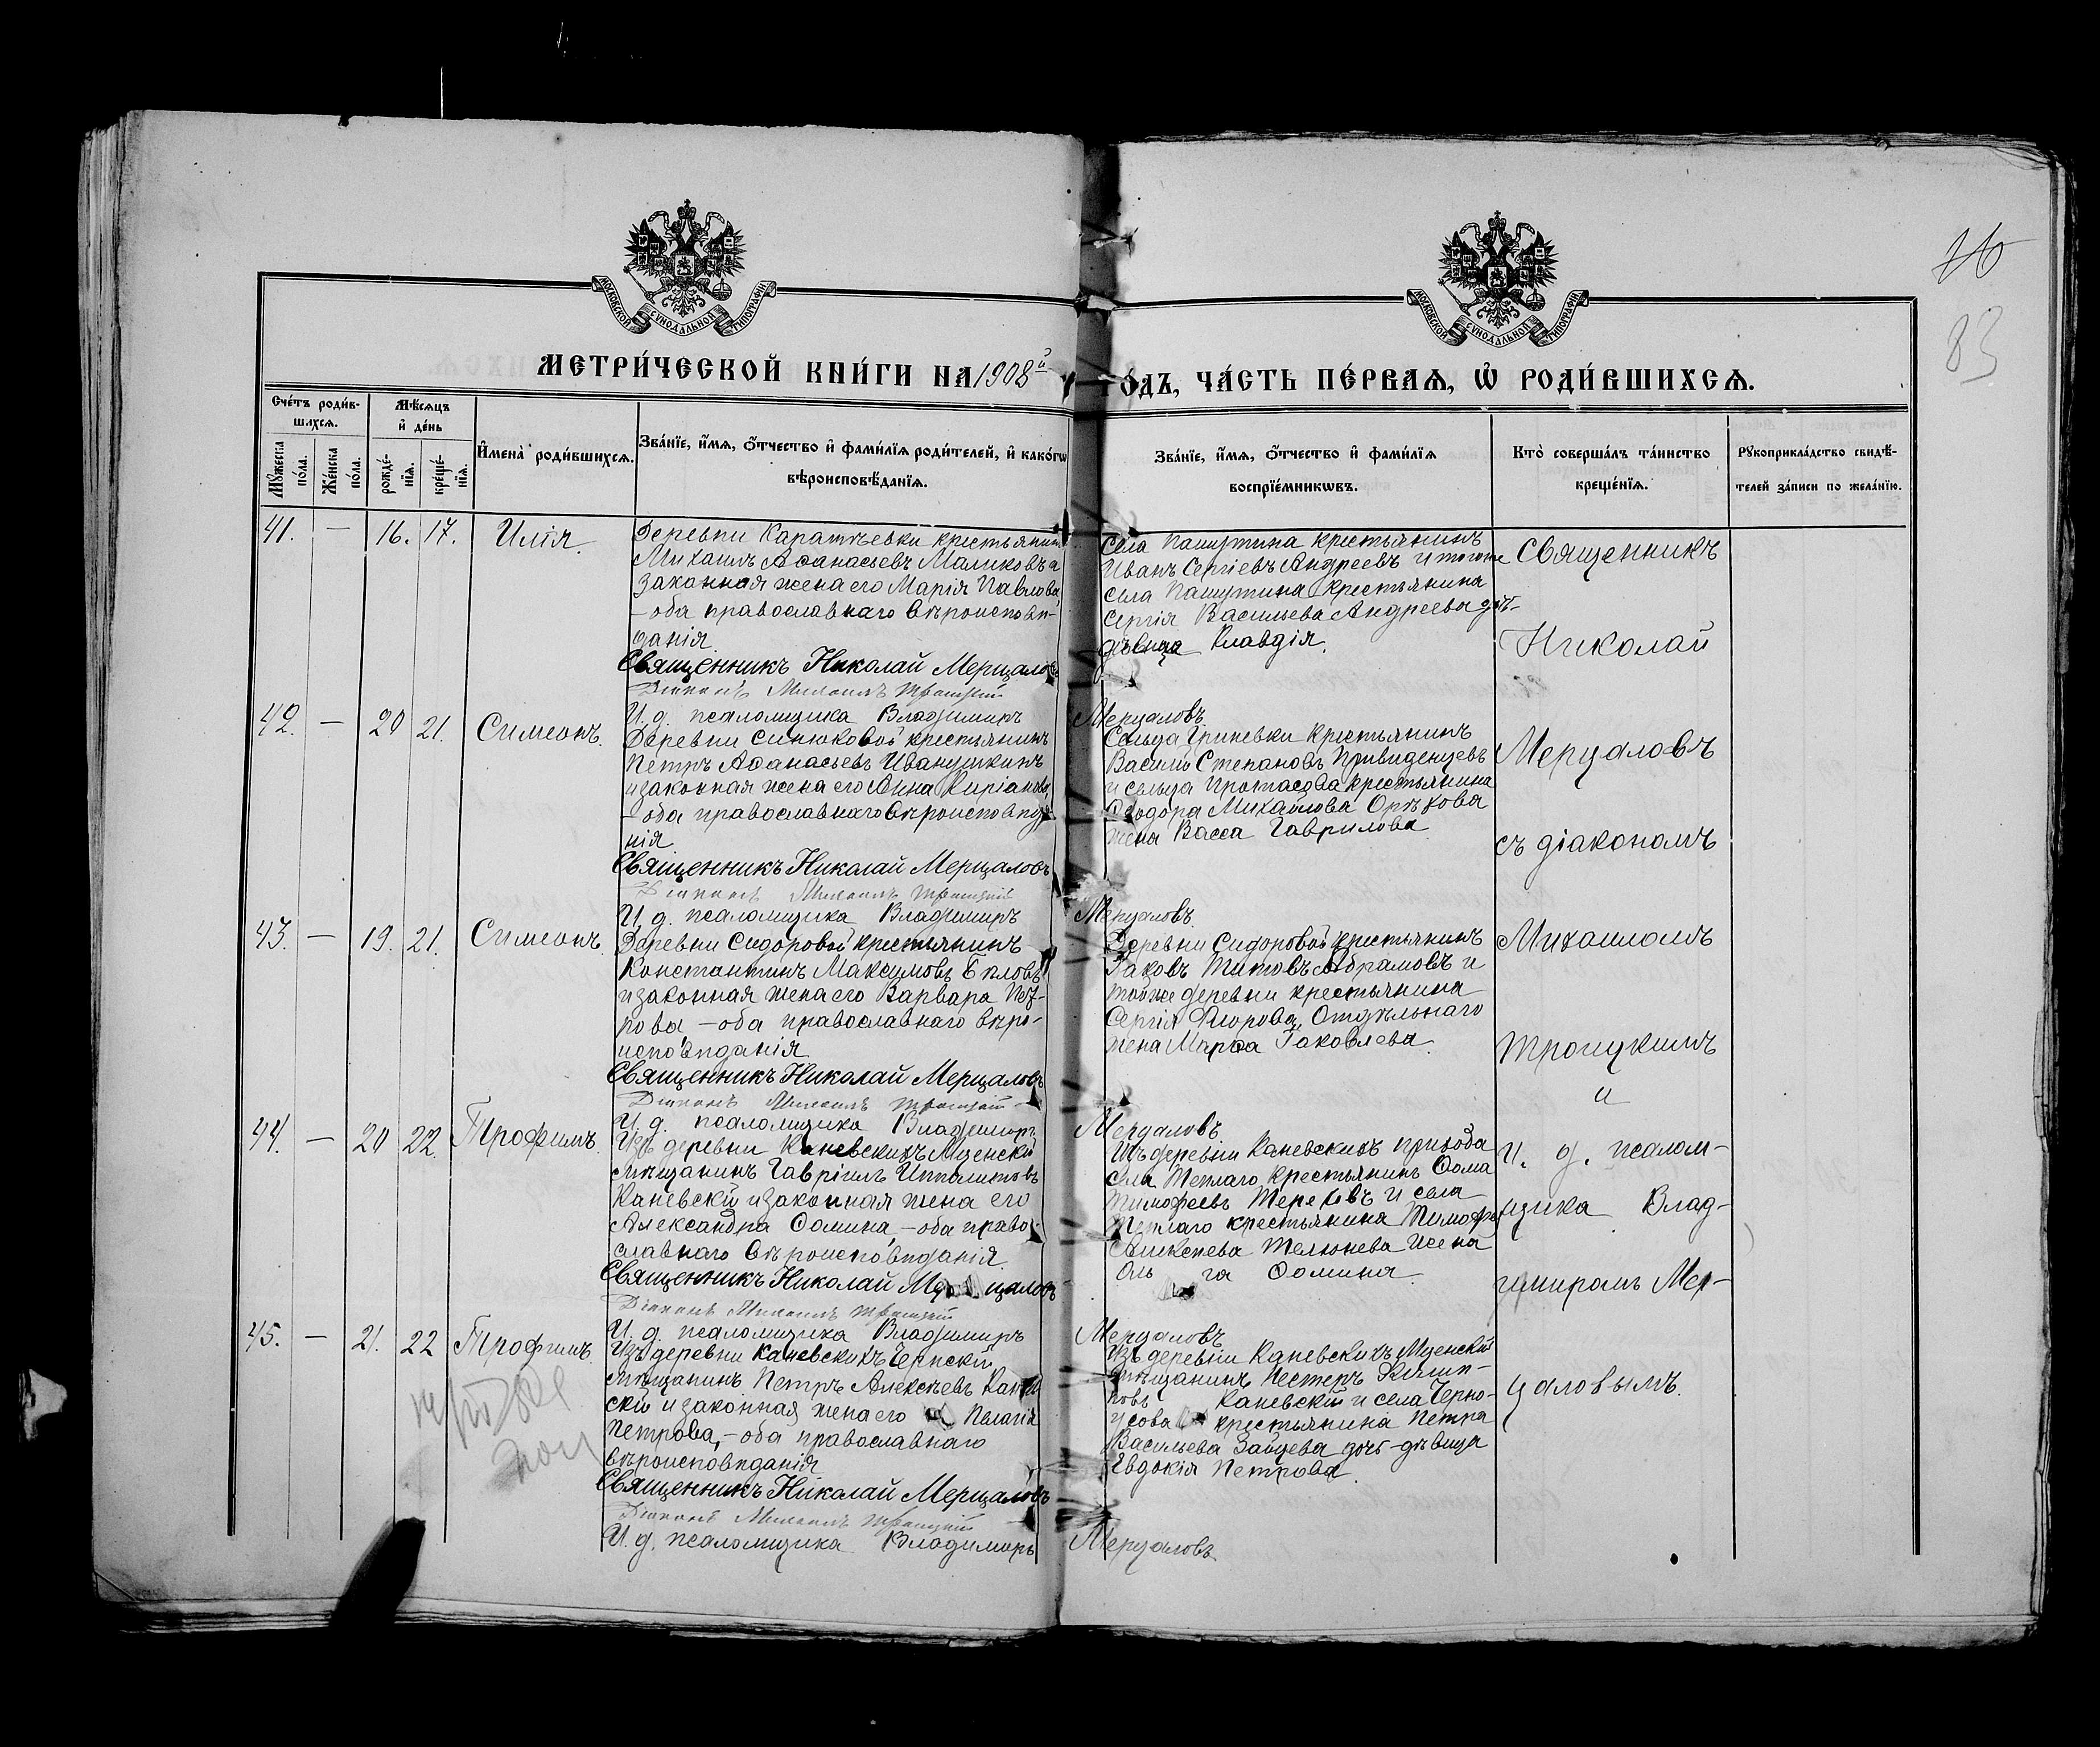 76
83
МОСКОВСКОЙ СѴНОДАЛЬНОЙ ТИПОГРАФІИ
МОСКОВСКОЙ СѴНОДАЛЬНОЙ ТИПОГРАФІИ
МЕТРИ́ЧЕСКОЙ КНИ́ГИ НА 1908й
ГОДЪ, ЧА́СТЬ ПЕ́РВАѦ, Ѡ҆ РОДИ́ВШИХСѦ.
Сче́тъ роди́в-
шихсѧ.
Мꙋ́жеска по́ла.
Же́нска по́ла.
Мѣ́сѧцъ
и҆ де́нь
рожде́-
нїѧ.
креще́-
нїѧ.
И҆мена̀ роди́вшихсѧ.
Зва́нїе, и҆́мѧ, ѻ҆́тчество и҆ фами́лїѧ роди́телей, и҆ како́гѡ
вѣроисповѣ́данїѧ.
Зва́нїе, и҆́мѧ, ѻ҆́тчество и҆ фами́лїѧ
воспрїе́мникѡвъ.
Кто̀ соверша́лъ та́инство
креще́нїѧ.
Рꙋкоприкла́дство свидѣ́-
телей за́писи по жела́нїю.
41. — 16. 17. Илія.
Деревни Каратѣевки крестьянинъ
Михаилъ Аѳанасьевъ Маликовъ и
законная жена его Марія Павлова,
— оба православнаго вѣроисповѣ-
данія.
Священникъ Николай Мерцаловъ
Діаконъ Михаилъ Троицкій
И. д. псаломщика Владимиръ Мерцаловъ.
Села Пашутина крестьянинъ
Иванъ Сергіевъ Андреевъ и тогоже
села Пашутина крестьянина
Сергія Васильева Андреева дочь-
дѣвица Клавдія.
42. — 20 21. Симеонъ.
Деревни Синюковой крестьянинъ
Петръ Аѳанасьевъ Иванушкинъ
и законная жена его Анна Киріанова,
— оба православнаго вѣроисповѣда-
нія.
Священникъ Николай Мерцаловъ
Діаконъ Михаилъ Троицкій
И. д. псаломщика Владимиръ Мерцаловъ.
Сельца Гриневки крестьянинъ
Василій Степановъ Привиденцевъ
и сельца Протасова крестьянина
Ѳеодора Михайлова Орѣхова
жена Васса Гаврилова
43. — 19. 21. Симеонъ.
Деревни Сидоровой крестьянинъ
Константинъ Максимовъ Бѣловъ
и законная жена его Варвара Пет-
рова — оба православнаго вѣро-
исповѣданія
Священникъ Николай Мерцаловъ
Діаконъ Михаилъ Троицкій
И. д. псаломщика Владимиръ Мерцаловъ.
Деревни Сидоровой крестьянинъ
Іаковъ Титовъ Абрамовъ и
тойже деревни крестьянина
Сергія Егорова Отдѣльнаго
жена Марѳа Іаковлева.
44. — 20 22. Трофимъ.
Изъ деревни Каневскихъ Мценскій
мѣщанинъ Гавріилъ Ипполитовъ
Каневскій и законная жена его
Александра Ѳомина, — оба право-
славнаго вѣроисповѣданія.
Священникъ Николай Мерцаловъ
Діаконъ Михаилъ Троицкій
И. д. псаломщика Владимиръ Мерцаловъ
Изъ деревни Каневскихъ прихода
села Теплаго крестьянинъ Ѳома
Тимофеевъ Тереховъ и села
Теплаго крестьянина Тимофея
Алексѣева Телюнева жена
Ольга Ѳомина.
45. — 21. 22 Трофимъ.
Изъ деревни Каневскихъ Чернскій
мѣщанинъ Петръ Алексѣевъ Канев-
скій и законная жена его Пелагія
Петрова, — оба православнаго
вѣроисповѣданія
Священникъ Николай Мерцаловъ
Діаконъ Михаилъ Троицкій
И. д. псаломщика Владимиръ Мерцаловъ.
Изъ деревни Каневскихъ Мценскій
мѣщанинъ Нестеръ
Каневскій и села Черно-
усова крестьянина Петра
Васильева Зайцева дочь-дѣвица
Евдокія Петрова.
Священникъ
Николай
Мерцаловъ
съ діакономъ
Михаиломъ
Троицкимъ
и
и. д. псалом-
щика Влад-
имиромъ Мер-
цаловымъ.